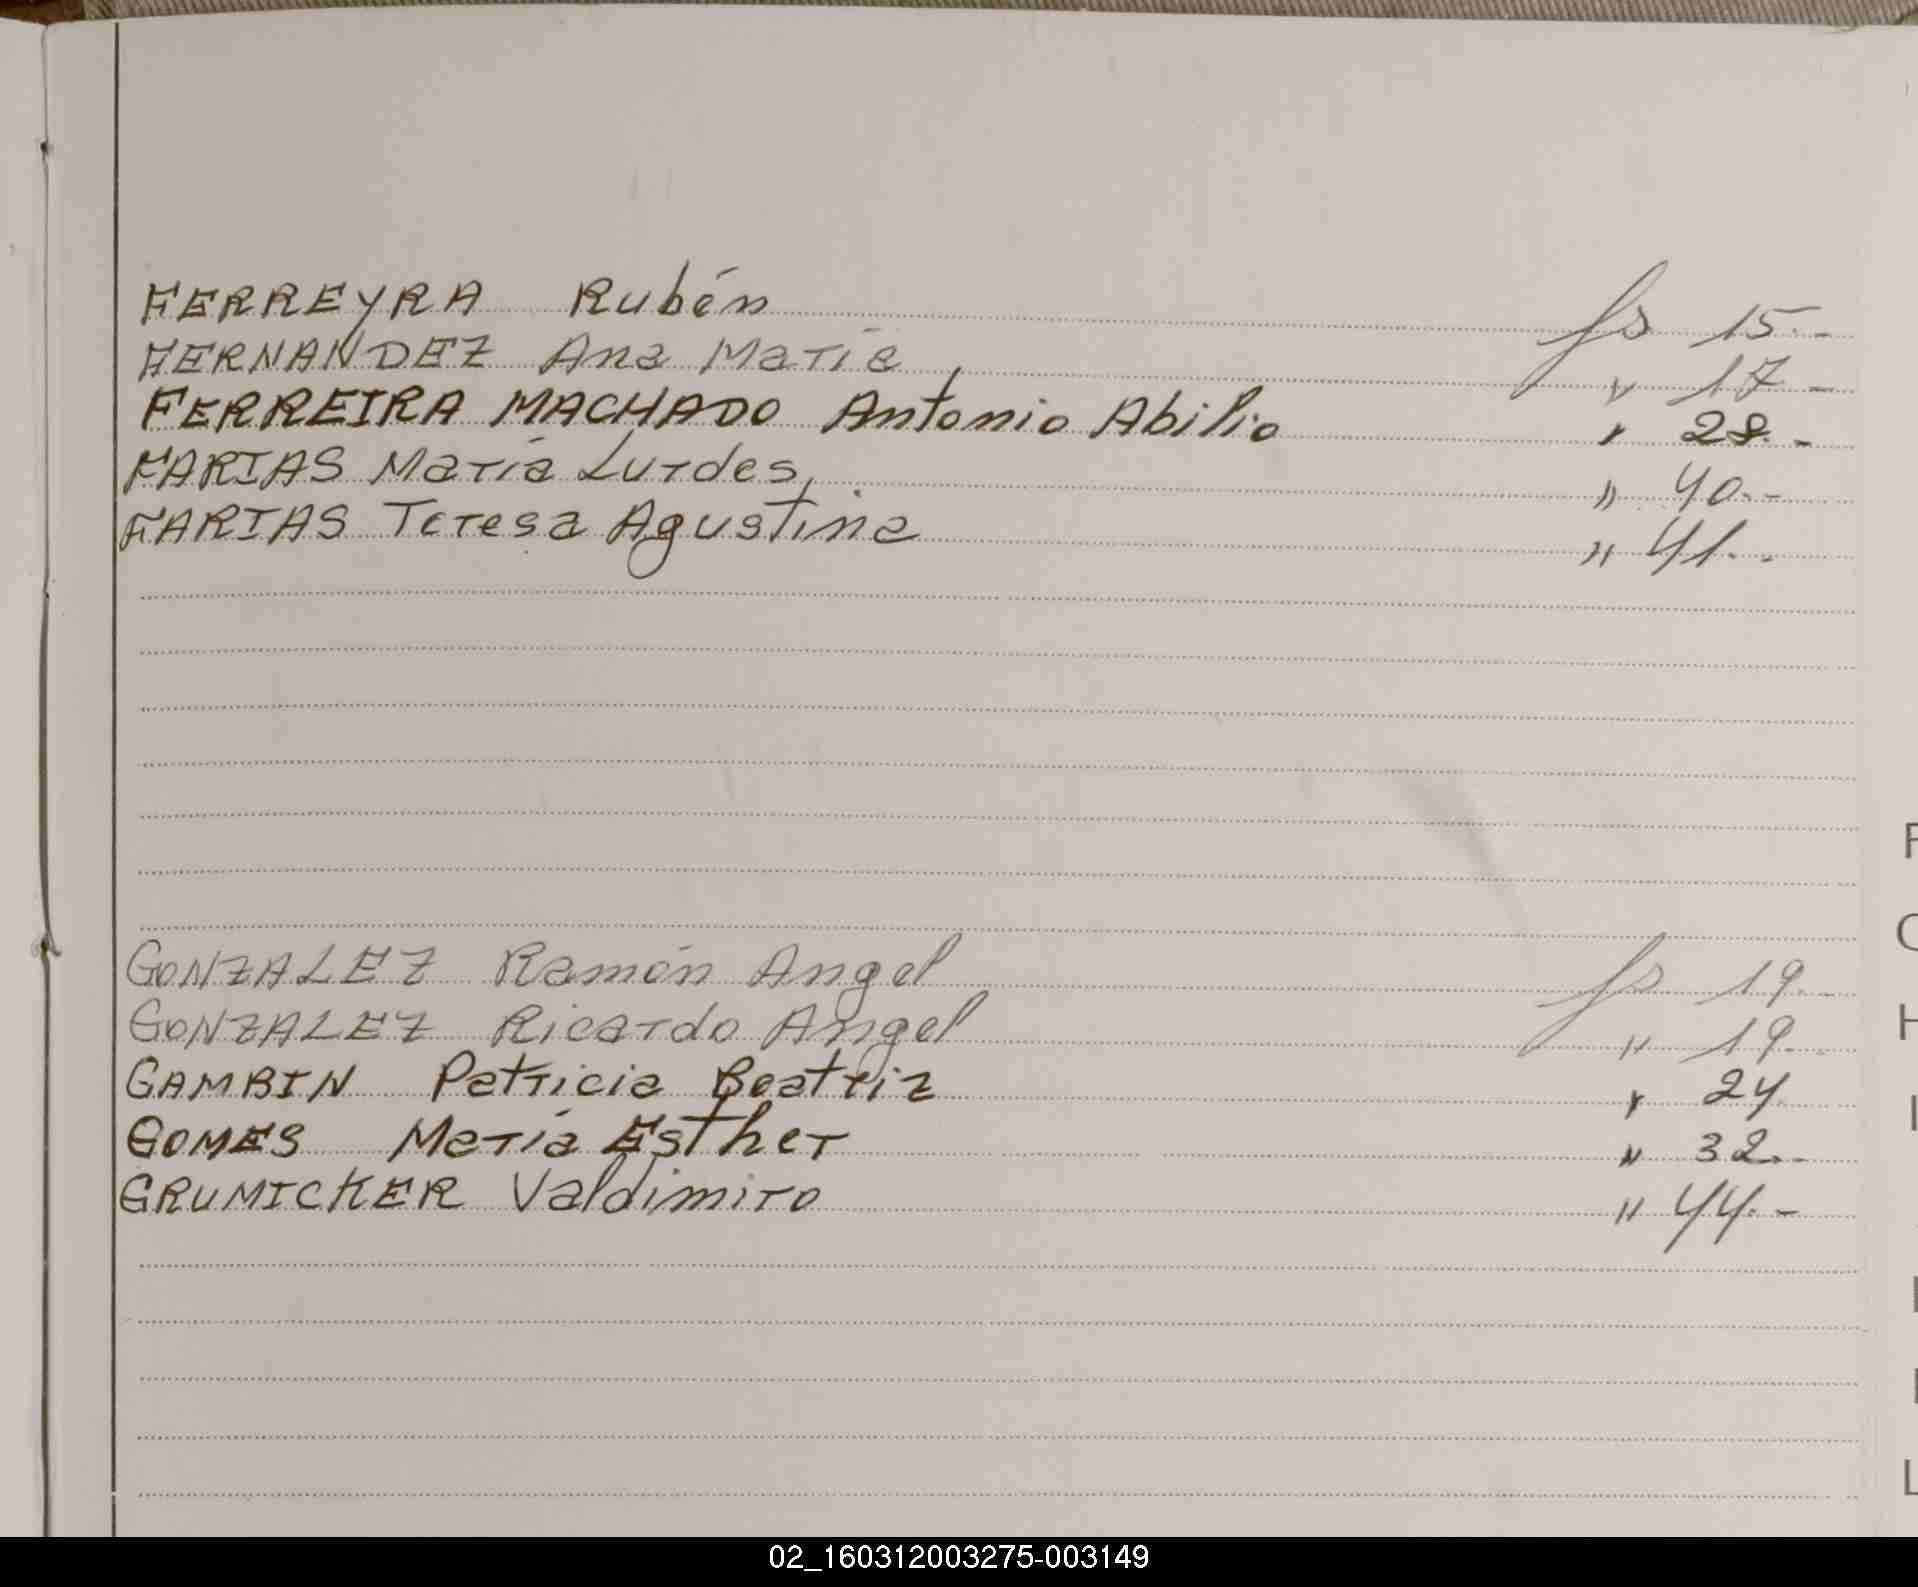 FERREYRA Rubén fs 15.-
FERNANDEZ Ana María " 17-
FERREIRA MACHADO Antonio Abilio " 28.-
FARIAS María Lurdes " 40.-
FARIAS Teresa Agustina " 41.-
F
G
GONZALEZ Ramón Angel fs 19.-
H
GONZALEZ Ricardo Angel " 19.-
GAMBIN Patricia Beatriz " 24
GOMES María Esther " 32.-
GRUMICKER Valdimiro " 44.-
L
02_160312003275-003149